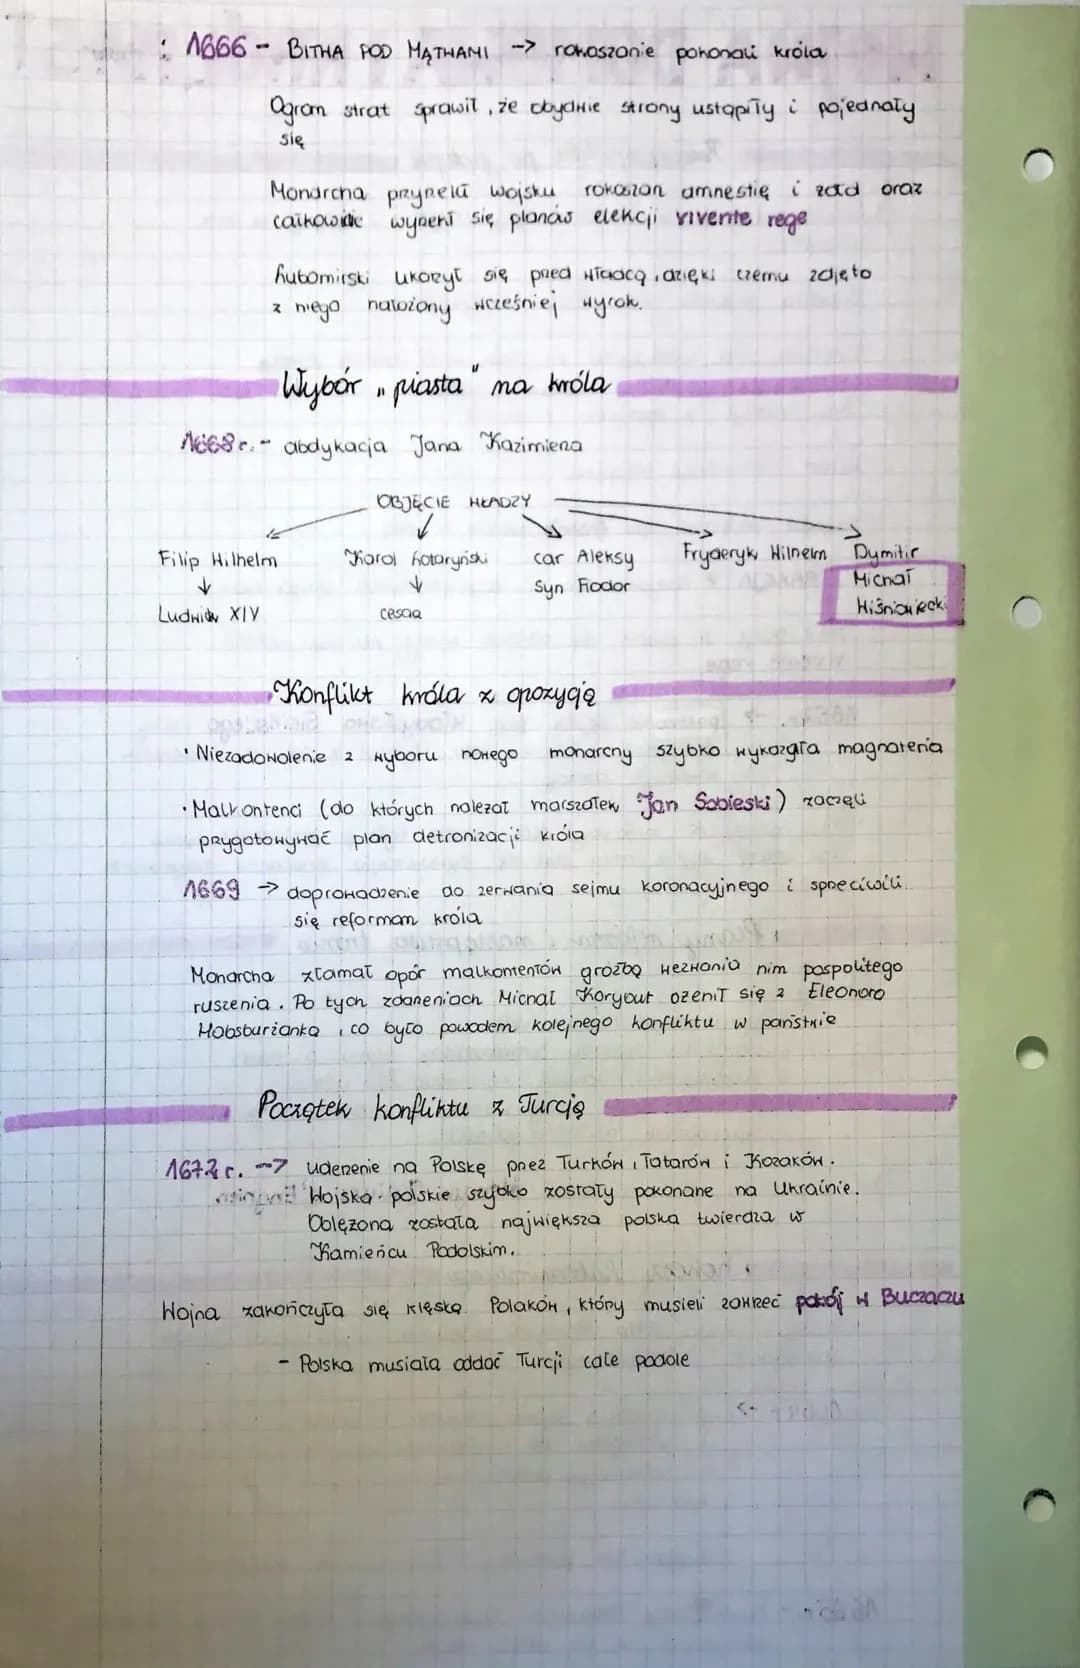 : 1666 - BITWA POD MĄTWAMI -> rokoszanie pokonali króla
Ogrom strat sprawił, że obydwie strony ustąpiły i pojednały
się
Monarcha przyrzekł wojsku rokoszan amnestię i żołd oraz
całkowicie wyparł się planów elekcji vivente rege
Lubomirski ukorzył się przed władcą, dzięki czemu zdjęto
z niego nałożony wcześniej wyrok.
Wybór „piasta" na króla
1668 r. - abdykacja Jana Kazimierza
OBJĘCIE WŁADZY
Filip Wilhelm Karol Lotaryński car Aleksy Fryderyk Wilhelm Dymitir
↓ ↓ Syn Fiodor Michał
Ludwik XIV cesarz Wiśniowiecki
Konflikt króla z opozycją
• Niezadowolenie z wyboru nowego monarchy szybko wykazała magnateria
• Malkontenci (do których należał marszałek Jan Sobieski) zaczęli
przygotowywać plan detronizacji króla
1669 -> doprowadzenie do zerwania sejmu koronacyjnego i sprzeciwili
się reformom króla
Monarcha złamał opór malkontentów groźbą wezwania nim pospolitego
ruszenia. Po tych zdarzeniach Michał Korybut ożenił się z Eleonorą
Habsburżanką, co było powodem kolejnego konfliktu w państwie
Początek konfliktu z Turcją
1672 r. -> uderzenie na Polskę przez Turków, Tatarów i Kozaków.
Wojska polskie szybko zostały pokonane na Ukrainie.
Oblężona została największa polska twierdza w
Kamieńcu Podolskim.
Wojna zakończyła się klęską Polaków, który musieli zawrzeć pokój w Buczaczu
- Polska musiała oddać Turcji całe podole